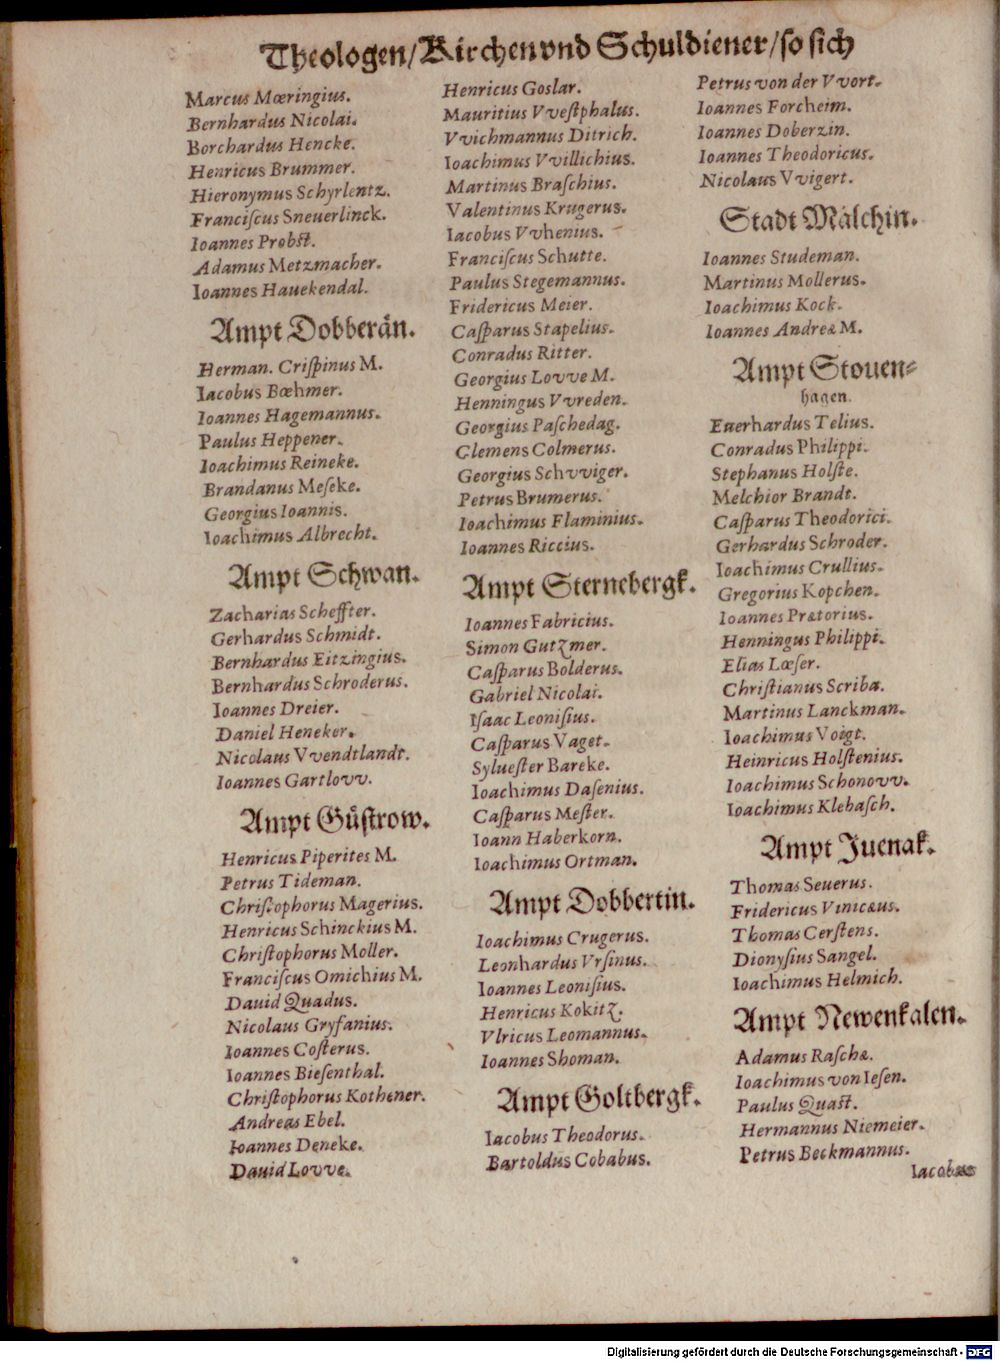 Theologen/Kirchen vnd Schuldiener/so sich
Marcus Mœringius.
Bernhardus Nicolai.
Borchardus Hencke.
Henricus Brummer.
Hieronymus Schyrlentz.
Franciſcus Sneuerlinck.
Ioannes Probſt.
Adamus Metzmacher.
Ioannes Hauekendal.
Ampt Dobberån.
Herman. Criſpinus M.
Iacobus Bœhmer.
Ioannes Hagemannus.
Paulus Heppener.
Ioachimus Reineke.
Brandanus Meſeke.
Georgius Ioannis.
Ioachimus Albrecht.
Ampt Schwan.
Zacharias Scheffter.
Gerhardus Schmidt.
Bernhardus Eitzingius.
Bernhardus Schroderus.
Ioannes Dreier.
Daniel Heneker.
Nicolaus Vvendtlandt.
Ioannes Gartlovv.
Ampt Gůſtrow.
Henricus Piperites M.
Petrus Tideman.
Chriſtophorus Magerius.
Henricus Schinckius M.
Chriſtophorus Moller.
Franciſcus Omichius M.
Dauid Quadus.
Nicolaus Gryfanius.
Ioannes Coſterus.
Ioannes Bieſenthal.
Chriſtophorus Kothener.
Andreas Ebel.
Ioannes Deneke.
Dauid Lovve.
Henricus Goslar.
Mauritius Vveſtphalus.
Vvichmannus Ditrich.
Ioachimus Vvillichius.
Martinus Braſchius.
Valentinus Krugerus.
Iacobus Vvhenius.
Franciſcus Schutte.
Paulus Stegemannus.
Fridericus Meier.
Caſparus Stapelius.
Conradus Ritter.
Georgius Lovve M.
Henningus Vvreden.
Georgius Paſchedag.
Clemens Colmerus.
Georgius Schvviger.
Petrus Brumerus.
Ioachimus Flaminius.
Ioannes Riccius.
Ampt Sternebergk.
Ioannes Fabricius.
Simon Gutzmer.
Caſparus Bolderus.
Gabriel Nicolai.
Iſaac Leoniſius.
Caſparus Vaget.
Sylueſter Bareke.
Ioachimus Daſenius.
Caſparus Meſter.
Ioann Haberkorn.
Ioachimus Ortman.
Ampt Dobbertin.
Ioachimus Crugerus.
Leonhardus Vrſinus.
Ioannes Leoniſius.
Henricus Kokitz.
Vlricus Leomannus.
Ioannes Shoman.
Ampt Goltbergk.
Iacobus Theodorus.
Bartoldus Cobabus.
Petrus von der Vvort.
Ioannes Forcheim.
Ioannes Doberzin.
Ioannes Theodoricus.
Nicolaus Vvigert.
Stadt Målchin.
Ioannes Studeman.
Martinus Mollerus.
Ioachimus Kock.
Ioannes Andreæ M.
Ampt Stouen-
hagen.
Euerhardus Telius.
Conradus Philippi.
Stephanus Holſte.
Melchior Brandt.
Caſparus Theodorici.
Gerhardus Schroder.
Ioachimus Crullius.
Gregorius Kopchen.
Ioannes Prætorius.
Henningus Philippi.
Elias Lœſer.
Chriſtianus Scriba.
Martinus Lanckman.
Ioachimus Voigt.
Heinricus Holſtenius.
Ioachimus Schonovv.
Ioachimus Klebaſch.
Ampt Juenak.
Thomas Seuerus.
Fridericus Vinicæus.
Thomas Cerſtens.
Dionyſius Sangel.
Ioachimus Helmich.
Ampt Newenkalen.
Adamus Raſchæ.
Ioachimus von Ieſen.
Paulus Quaſt.
Hermannus Niemeier.
Petrus Beckmannus.
Iacobus
Digitalisierung gefördert durch die Deutsche Forschungsgemeinschaft - DFG